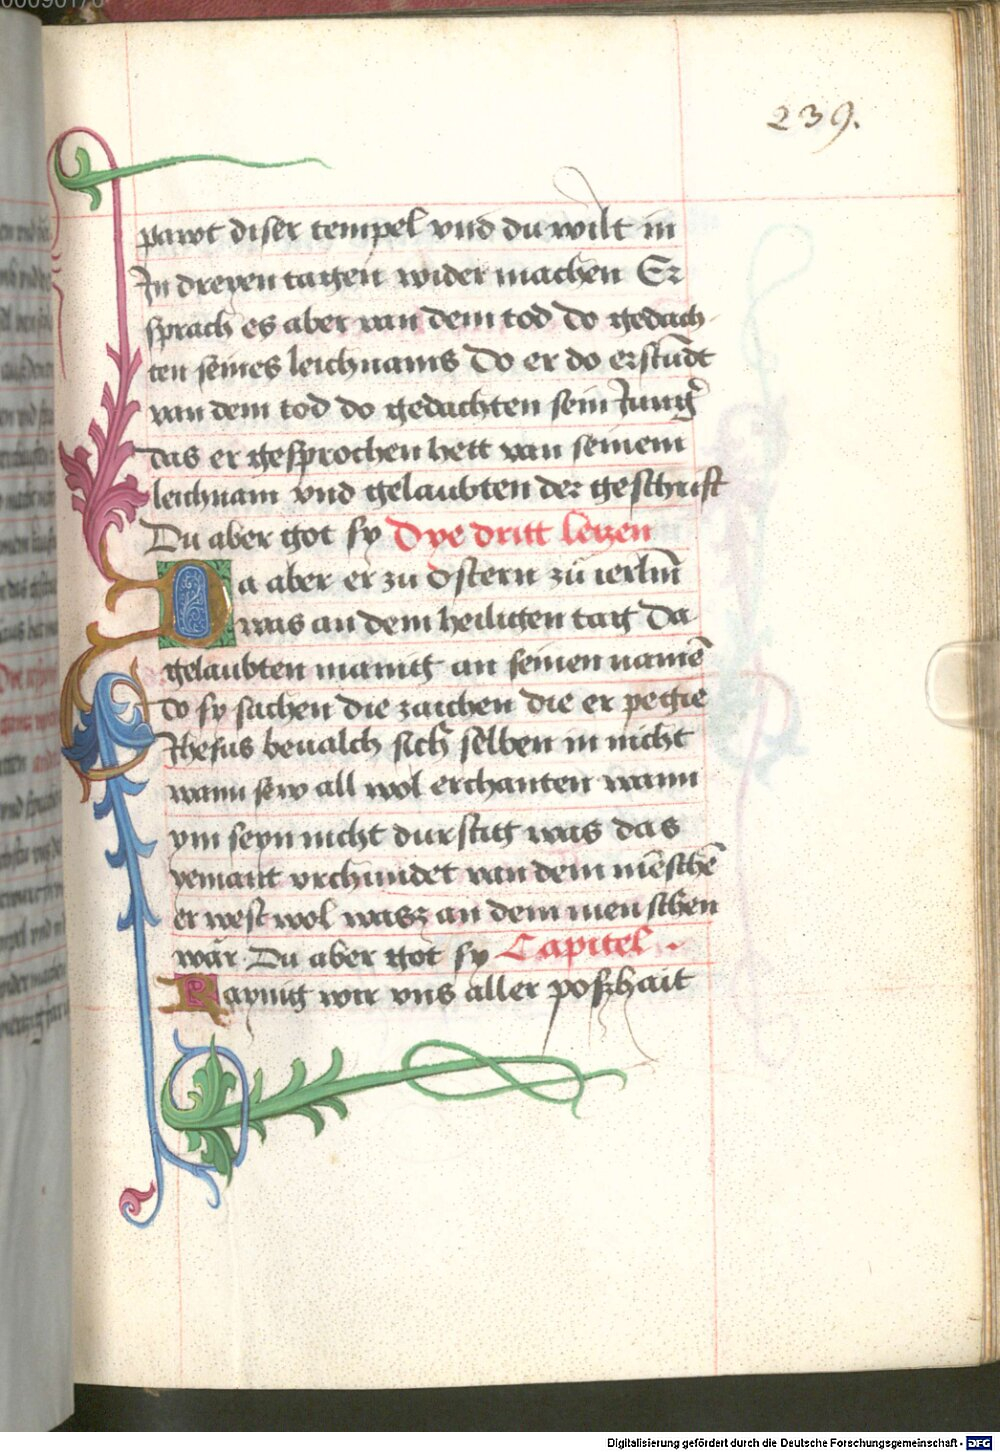 239.
pawt diser tempel vnd du wilt in
In dreyen tagen wider machen Er
sprach es aber van dem tod do gedach
ten seines leichnams Do er do erstūdt
van dem tod do gedachten sein Jung̉
das er gesprochen hett van seinem
leichnam vnd gelaubten der geschrift
Du aber got sy Dye dritt letzen
Da aber er zu ostern zu ierlm̄
was an dem heiligen tag Da
gelaubten manig an seinen namē
do sy sachen die zaichen die er pegie
Jhesus beualch sich selben in nicht
wann sew all wol erchanten wann
ym seyn nicht durstig was das
yemant vrchundet van dem mēschē
er west wol wasz an dem menschen
wär Du aber got sy Capitel .
Raynig wir vns aller poszhait
Digitalisierung gefördert durch die Deutsche Forschungsgemeinschaft - DFG